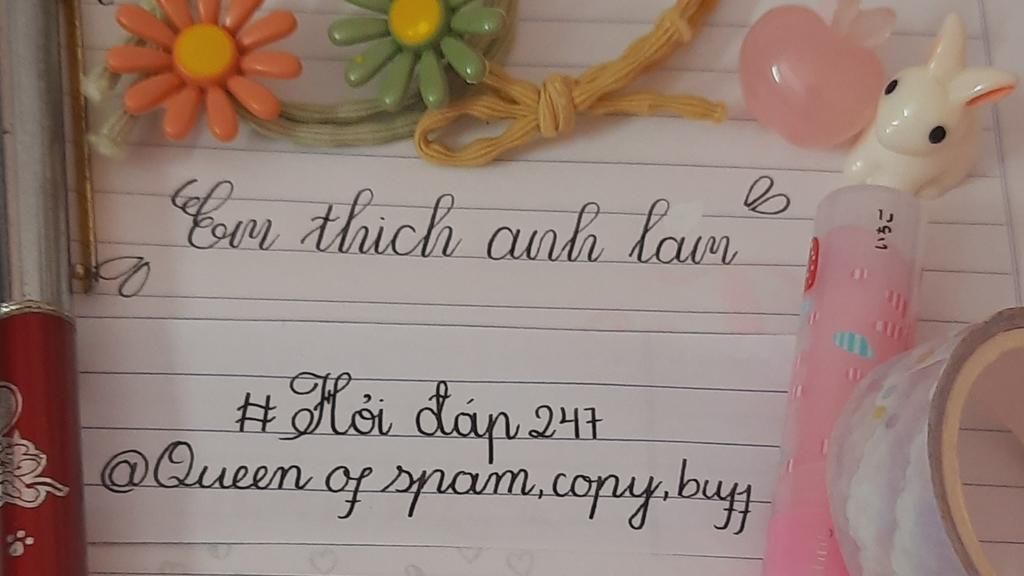 Em thich anh lam
#Hỏi đáp 247
@Queen of spam, copy, buff
いちご